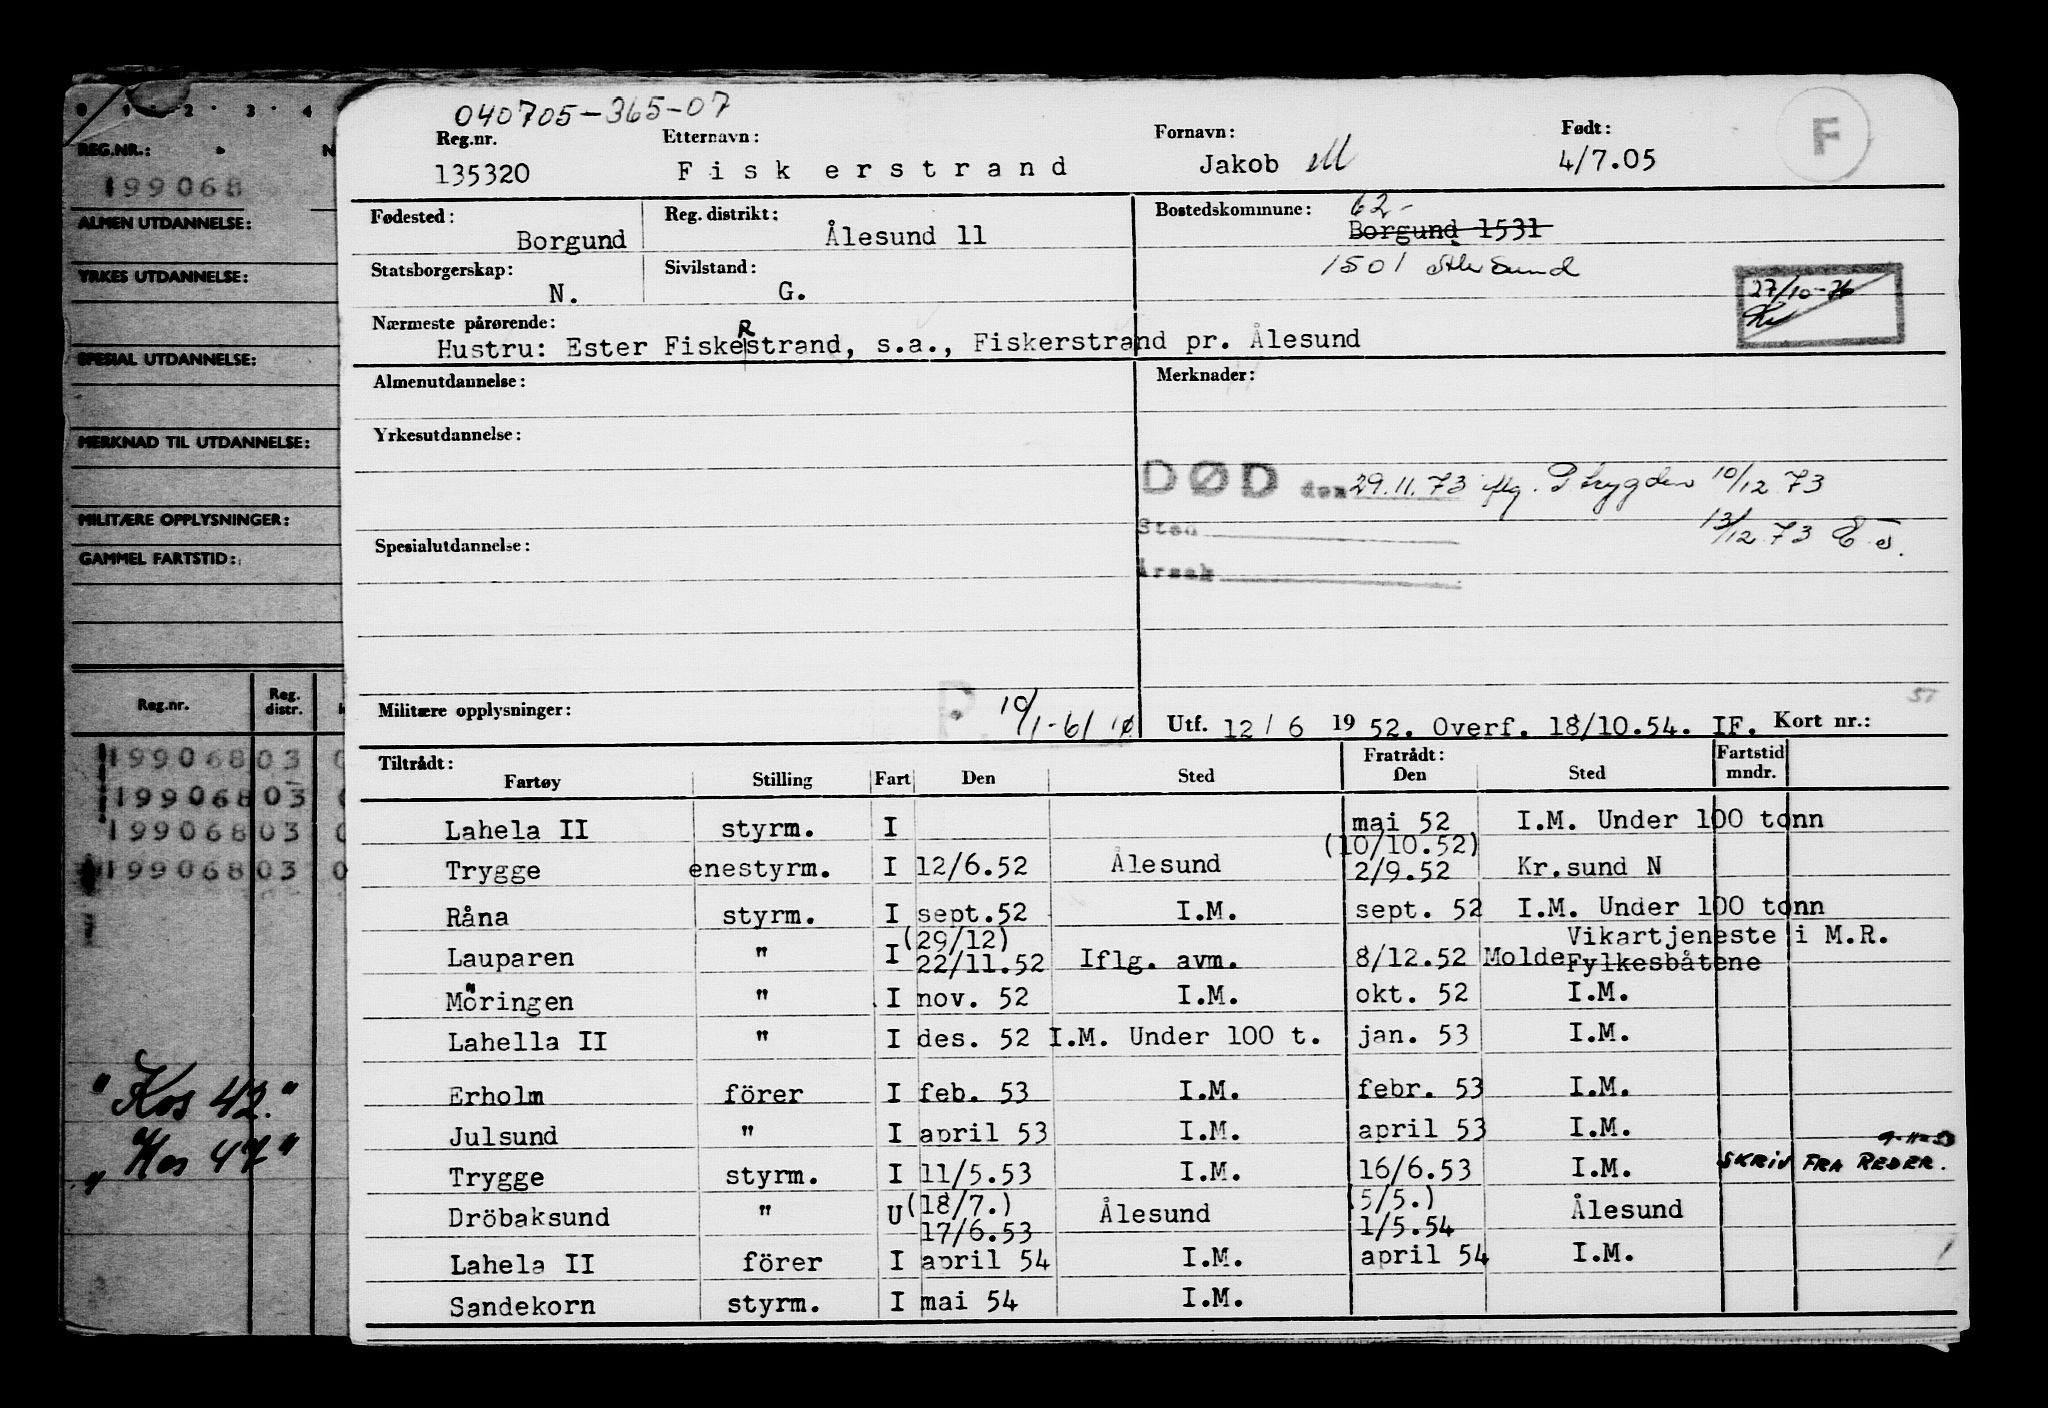 040705-365-07
Reg.nr. Etternavn: Fornavn: Født:
135320 Fiskerstrand Jakob M 4/7.05 F
Fødested: Reg. distrikt: Bostedskommune: 62-
Borgund Ålesund 11 Borgund 1531
Statsborgerskap: Sivilstand: 1501
N. G.
27/10-76
Nærmeste pårørende:
Hustru: Ester FiskeRstrand, s.a., Fiskerstrand pr. Ålesund
Almenutdannelse: Merknader:
Yrkesutdannelse:
DØD den 29.11.73 iflg. P trygden 10/12 73
Sted 13/12 73
Spesialutdannelse:
Årsak
Militære opplysninger: P. 10/1-61 Utf. 12/6 1952. Overf. 18/10.54. IF. Kort nr.:
Tiltrådt: Fratrådt: Fartstid
Fartøy Stilling Fart Den Sted Den Sted mndr.
Lahela II styrm. I mai 52 I.M. Under 100 tonn
(10/10.52)
Trygge enestyrm. I 12/6.52 Ålesund 2/9.52 Kr.sund N
Råna styrm. I sept.52 I.M. sept. 52 I.M. Under 100 tonn
(29/12) Vikartjeneste i M.R.
Lauparen " I 22/11.52 Iflg. avm. 8/12.52 Molde Fylkesbåtene
Möringen " I nov. 52 I.M. okt. 52 I.M.
Lahella II " I des. 52 I.M. Under 100 t. jan. 53 I.M.
Erholm förer I feb. 53 I.M. febr. 53 I.M.
Julsund " I april 53 I.M. april 53 I.M.
Trygge styrm. I 11/5.53 I.M. 16/6.53 I.M. SKRIV FRA REDER.
(18/7.) (5/5.)
Dröbaksund " U 17/6.53 Ålesund 1/5.54 Ålesund
Lahela II förer I april 54 I.M. april 54 I.M.
Sandekorn styrm. I mai 54 I.M.
0 1 2 3 4
REG.NR.: N
199068
ALMEN UTDANNELSE:
YRKES UTDANNELSE:
SPESIAL UTDANNELSE:
MERKNAD TIL UTDANNELSE:
MILITÆRE OPPLYSNINGER:
GAMMEL FARTSTID:
Reg.nr. Reg. distr.
199068 03 0
199068 03
199068 03 0
199068 03 0
"Kos 42."
"Kos 47"